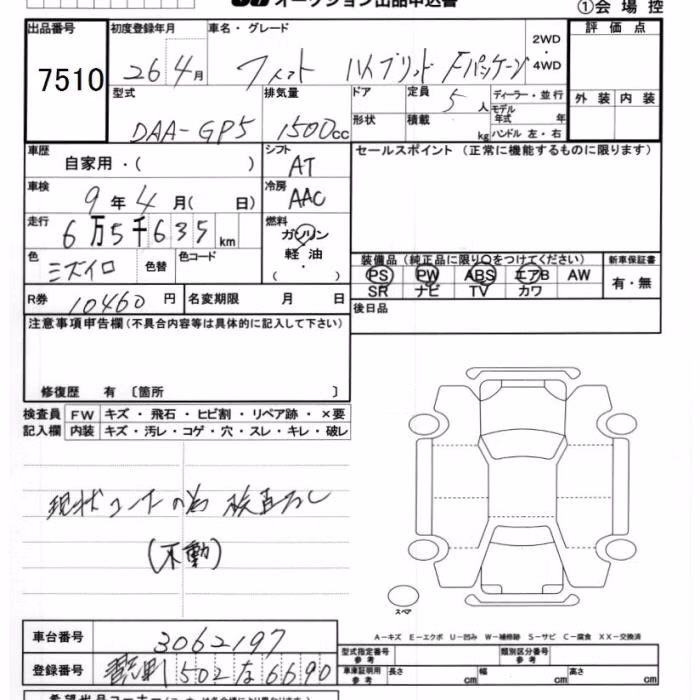 オークション出品申込書 ①会場控
出品番号 初度登録年月 車名・グレード 評価点
7510 26 4月 フィット ハイブリッド Fパッケージ 2WD・4WD
型式 排気量 ドア 定員 5人 ディーラー・並行 外装 内装
DAA-GP5 1500cc 形状 積載 kg モデル年式 年 ハンドル 左・右
車歴 シフト セールスポイント（正常に機能するものに限ります）
自家用・( ) AT
車検 冷房
9年4月( 日) AAC
走行 燃料
6万5千635km ガソリン・軽油・( )
色 色替 色コード 装備品（純正品に限り○をつけてください） 新車保証書
ミズイロ PS PW ABS エアB AW 有・無
SR ナビ TV カワ
R券 10460円 名変期限 月 日 後日品
注意事項申告欄（不具合内容等は具体的に記入して下さい）
修復歴 有〔箇所 〕
検査員 FW キズ・飛石・ヒビ割・リペア跡・×要
記入欄 内装 キズ・汚レ・コゲ・穴・スレ・キレ・破レ
現状コーナーの為 検査なし
(不動)
スペア
A－キズ E－エクボ U－凹み W－補修跡 S－サビ C－腐食 XX－交換済
車台番号 3062197 型式指定番号 参考 類別区分番号 参考
登録番号 502 な 6690 車庫証明用 参考 長さ cm 幅 cm 高さ cm
希望出品コーナー